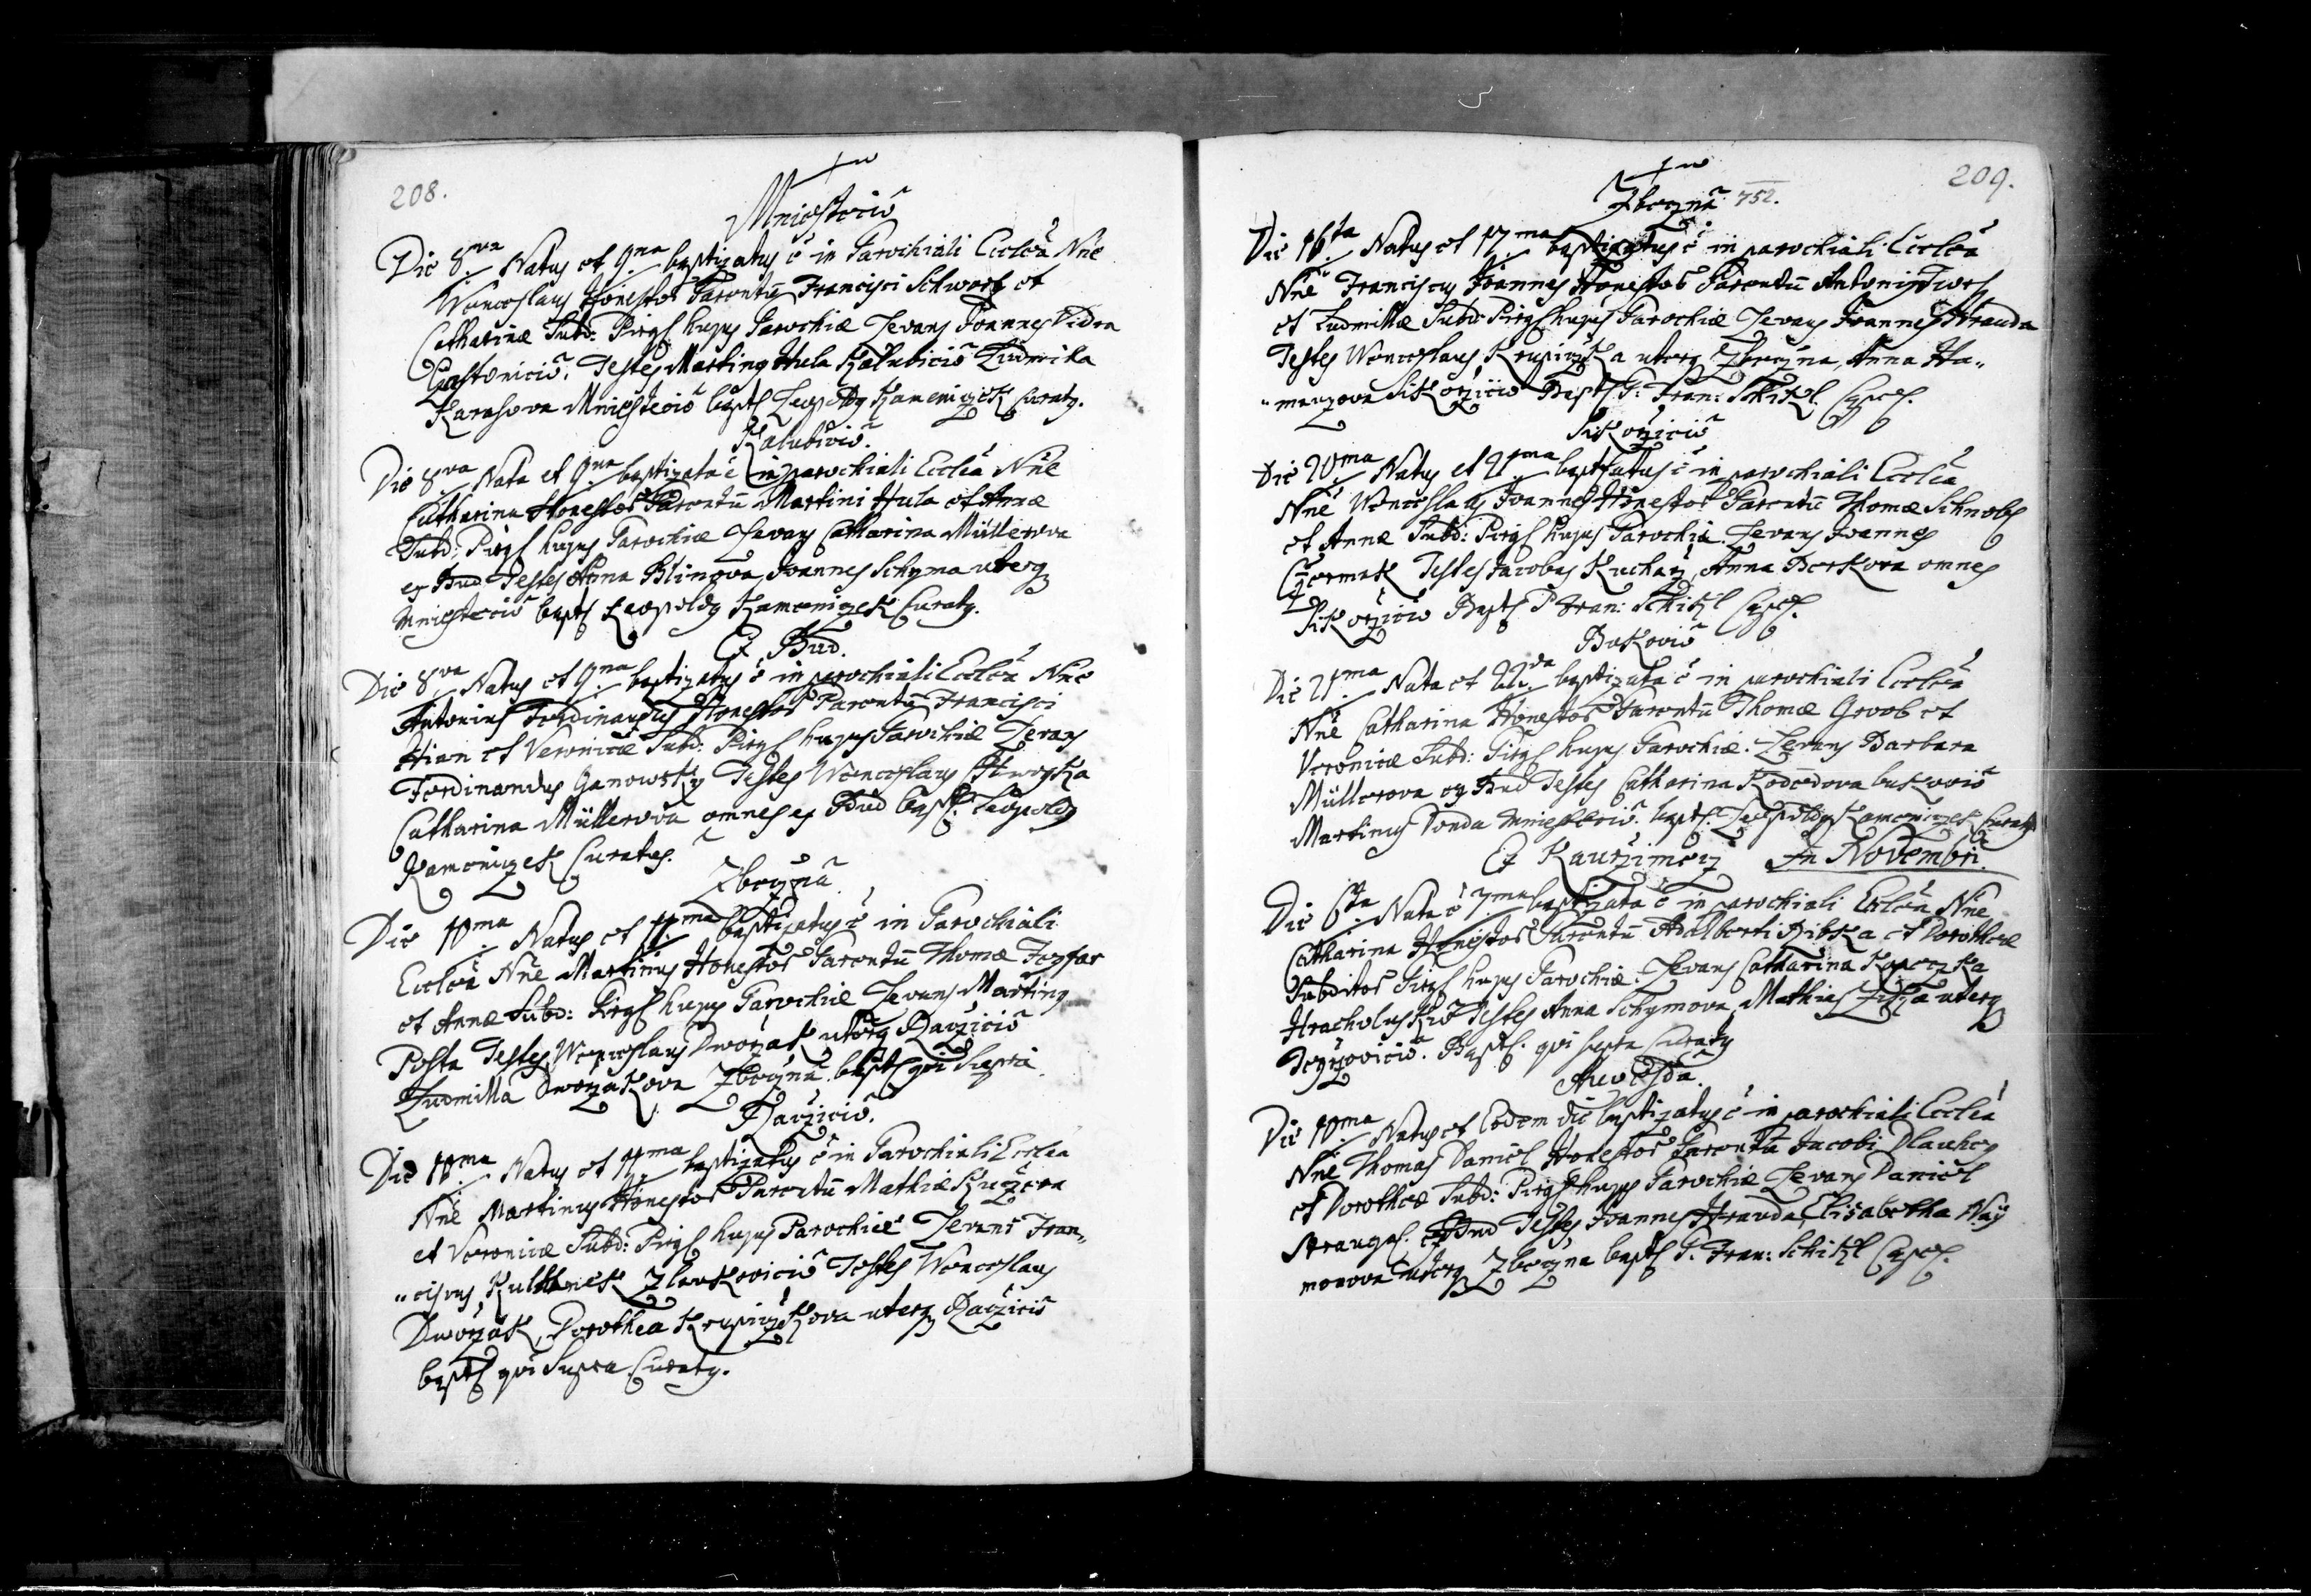 208.
Mniesteciō
Die 8va Natus et 9na baptizatus ē in Parochiali Ecclēa Nrē
Wenceslaus Honestoȓ Parentū Francisci Schwartz et
Catharinæ Subd: Pirgl: hujus Parochiæ Levans Joannes Vidra
Testes Martinq Hula Kalubiciō Ludmila
Karasova Mniesteciō bapt: Leopoldq Kameniczek Curatq.
Kalubiciō.
Die 8va Nata et 9na baptizata ē in parochiali Ecclēa Nrē
Catharina Honestoȓ Parentū Martini Hula et Annæ
Subd: Pirgl: hujus Parochiæ Levans Catharina Müllerova
ex Bud Testes Anna Blinzova Joannes Schyma uterq
Mniesteciō bapt: Leopoldq Kameniczek Curatq.
Ex Bud.
Die 8va Natus et 9na baptizatus ē in parochiali Ecclēa Nrē
Antonius Ferdinandus Honestoȓ Parentū Francisci
Hian et Veronicæ Subd: Pirgl: hujus Parochiæ Levans
Ferdinandus Ganowsky Testes Wenceslaus
Catharina Müllerova omnes ex Bud bapt: Leopoldq
Kameniczek Curatus.
Zbeczna
Die 10ma Natus et 11ma baptizatus ē in Parochiali
Ecclēa Nrē Martinus Honestoȓ Parentū Thomæ
et Annæ Subd: Pirgl: hujus Parochiæ Levans Martinq
Posta Testes Wenceslaus Dworzak uterq Racziciō
Ludmilla Dworzakova Zbeczna bapt: qui supra.
Racziciō.
Die 10ma Natus et 11ma baptizatus ē in Parochiali Ecclēa
Nrē Martinus Honestoȓ Parentū Mathiæ Kuczera
et Veronicæ Subd: Pirgl: hujus Parochiæ Levans Fran„
„ciscus Zlaukoviciō Testes Wenceslaus
Dworzak, Dorothea Krupiczkova uterq Raczicis
bapt: qui supra Curatq.
209.
Zbeczna 752.
Die 16ta Natus et 17ma baptizatus ē in parochiali Ecclēa
Nrē Franciscus Joannes Honestoȓ Parentū Antonii
et Ludmillæ Subd: Pirgl: hujus Parochiæ Levans Joannes Strauda
Testes Wenceslaus Krupiczka uterq Zbeczna, Anna Ha„
„manzova Sikorziciō Bapt: P: Fran: Schitzl Capel.
Sikorziciō
Die 20ma Natus et 21ma baptizatus ē in parochiali Ecclēa
Nrē Wenceslaus Joannes Honestoȓ Parentū Thomæ
et Annæ Subd: Pirgl: hujus Parochiæ. Levans Joannes
Czermak Testes Jacobus Kucharz, Anna Berkova omnes
Sikorziciō Bapt: P Fran: Schitzl Capel.
Bukoviō
Die 21ma Nata et 22da baptizata ē in parochiali Ecclēa
Nrē Catharina Honestoȓ Parentū Thomæ Groob et
Veronicæ Subd: Pirgl: hujus Parochiæ. Levans Barbara
Müllerova ex Bud Testes Catharina bukoviō
Martinus Donda Mniesteciō. bapt: Leopoldq Kameniczek Curatq
Ex Kaurzimecz In Novembri.
Die 6ta Nata ē 7ma baptizata ē in parochiali Ecclēa Nrē
Catharina Honestoȓ Parentū Adalberti Ribka et Dorotheæ
Subditoȓ Pirgl: hujus Parochiæ. Levans Catharina
Hracholuskiō Testes Anna Schymova, Mathias uterq
Bapt: qui supra Curatq
Nuwesda.
Die 10ma Natus et Eodem die baptizatus ē in parochiali Ecclēa
Nrē Thomas Daniel Honestoȓ Parentū Jacobi Dlauhey
et Dorotheæ Subd: Pirgl: hujus Parochiæ Levans Daniel
ex Bud Testes Joannes Strauda, Elisabetha Naÿ
monova uterq Zbeczna bapt: P. Fran: Schitzl Capel.